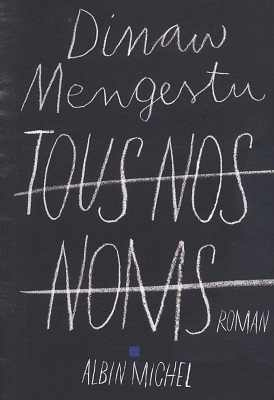 Dinaw
Mengestu
TOUS NOS
NOMS
ROMAN
ALBIN MICHEL